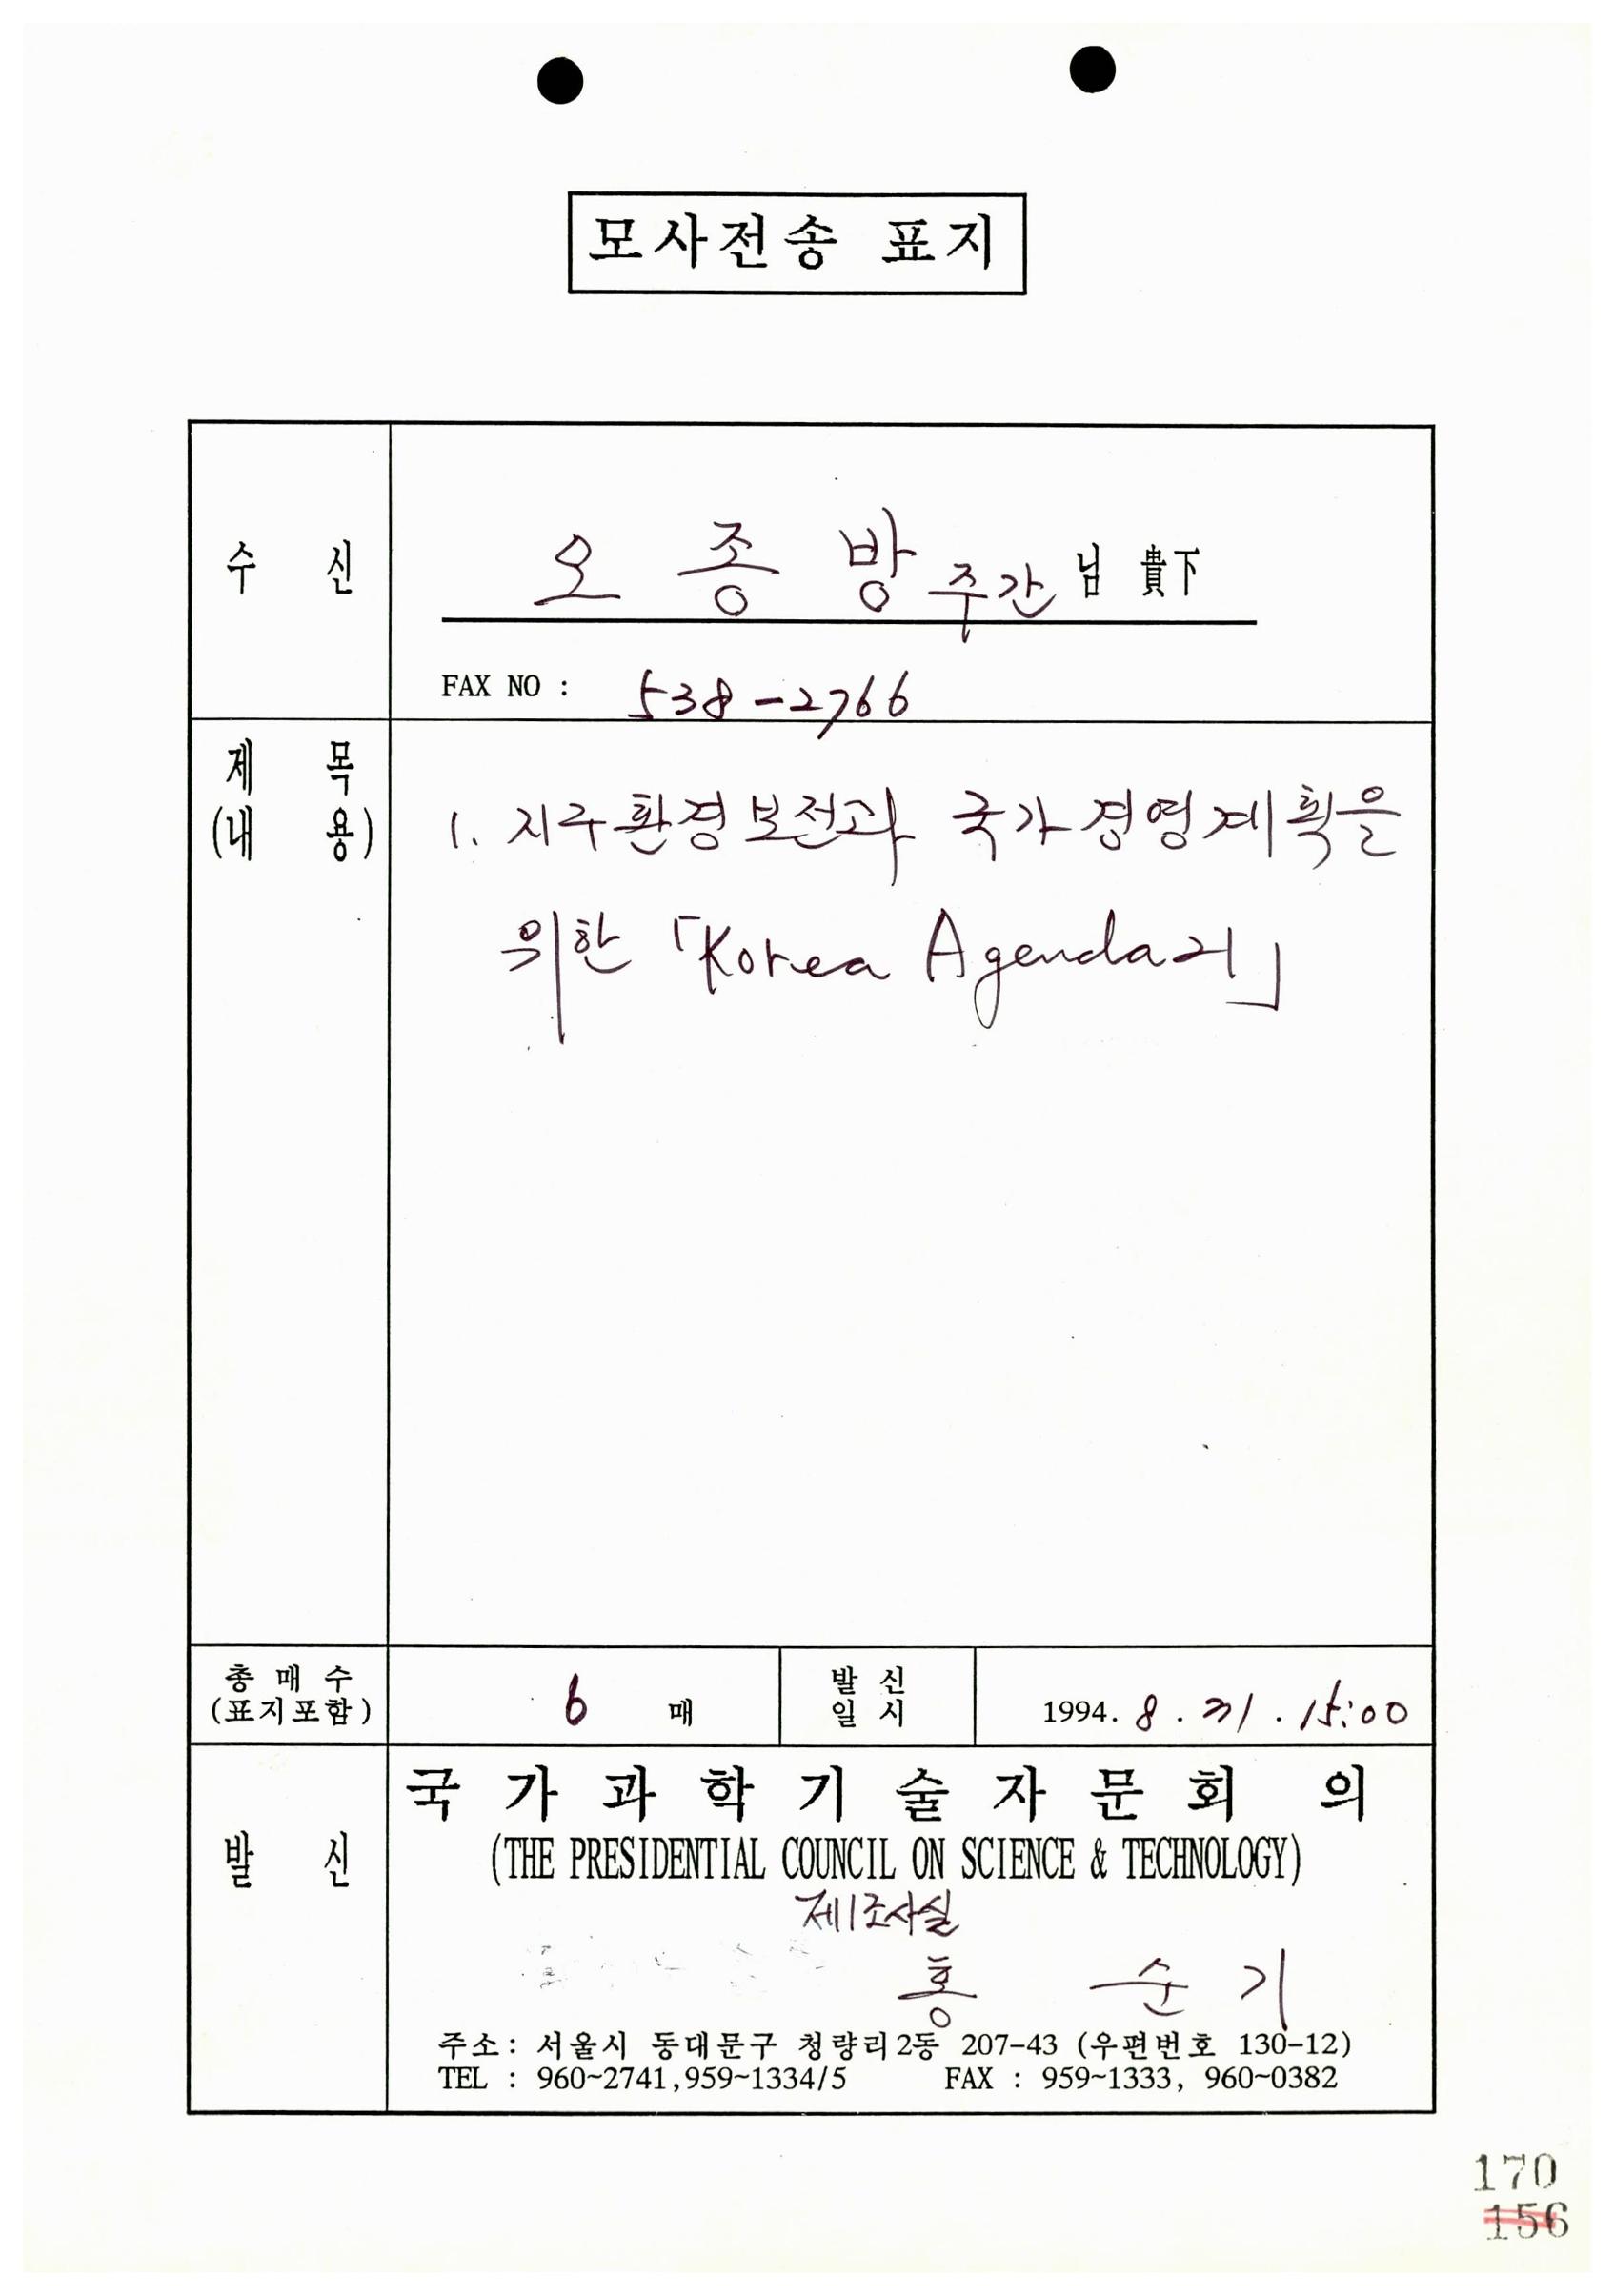 모사전송 표지
수 신
오 종 방 주간 님 貴下
FAX NO : 538-2766
제 목
(내 용)
1. 지구환경보전과 국가경영계획을
위한 「Korea Agenda 21」
총 매 수
(표지포함)
6 매
발 신
일 시
1994. 8 . 31 . 15:00
발 신
국 가 과 학 기 술 자 문 회 의
(THE PRESIDENTIAL COUNCIL ON SCIENCE & TECHNOLOGY)
제1조사실
홍 순 기
주소: 서울시 동대문구 청량리2동 207-43 (우편번호 130-12)
TEL : 960~2741,959~1334/5 FAX : 959~1333, 960~0382
170
156